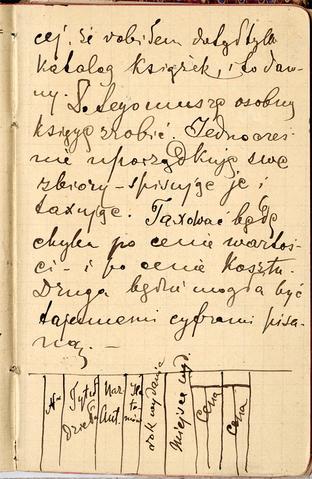 cej. że robiłem dotąd tylko
katalog książek, i to daw-
ny. Do tego muszę osobną
księgę zrobić. Jednocześ-
nie uporządkuję swe
zbiory – spisując je i
taxując. Taxować będę
chyba po cenie wartoś-
ci – i po cenie kosztu.
Druga będzie mogła być
tajemnemi cyframi pisa-
na. –
N-
Tytuł
Dzieła
Naz
Aut.
Ilo
tomów
rok wydania
miejsce wyd.
Cena
Cena